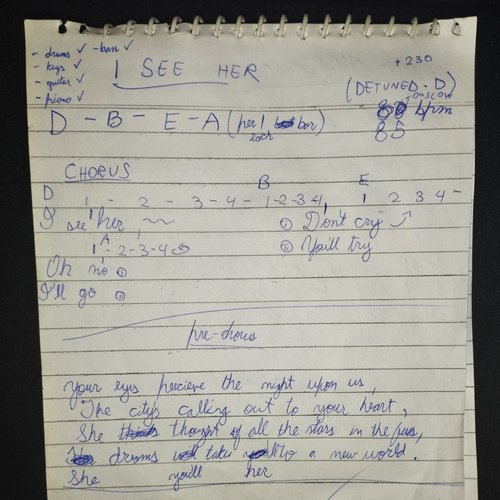 - drums ✓ - bass ✓
- keys ✓
- guitar ✓
- piano ✓
I SEE HER
+ 230
(DETUNED - D)
bpm
85
D - B - E - A (per 1 bar)
each
CHORUS
D B E
1 - 2 - 3 - 4 - 1 - 2 - 3 - 4, 1 2 3 4 -
I see her, ① Don't cry
A
1 - 2 - 3 - 4 ② You'll try
Oh no ①
I'll go ②
pre-chorus
Your eyes percieve the night upon us,
The citys calling out to your heart,
She thought of all the stars in the
dreams take to a new world.
She you'll her